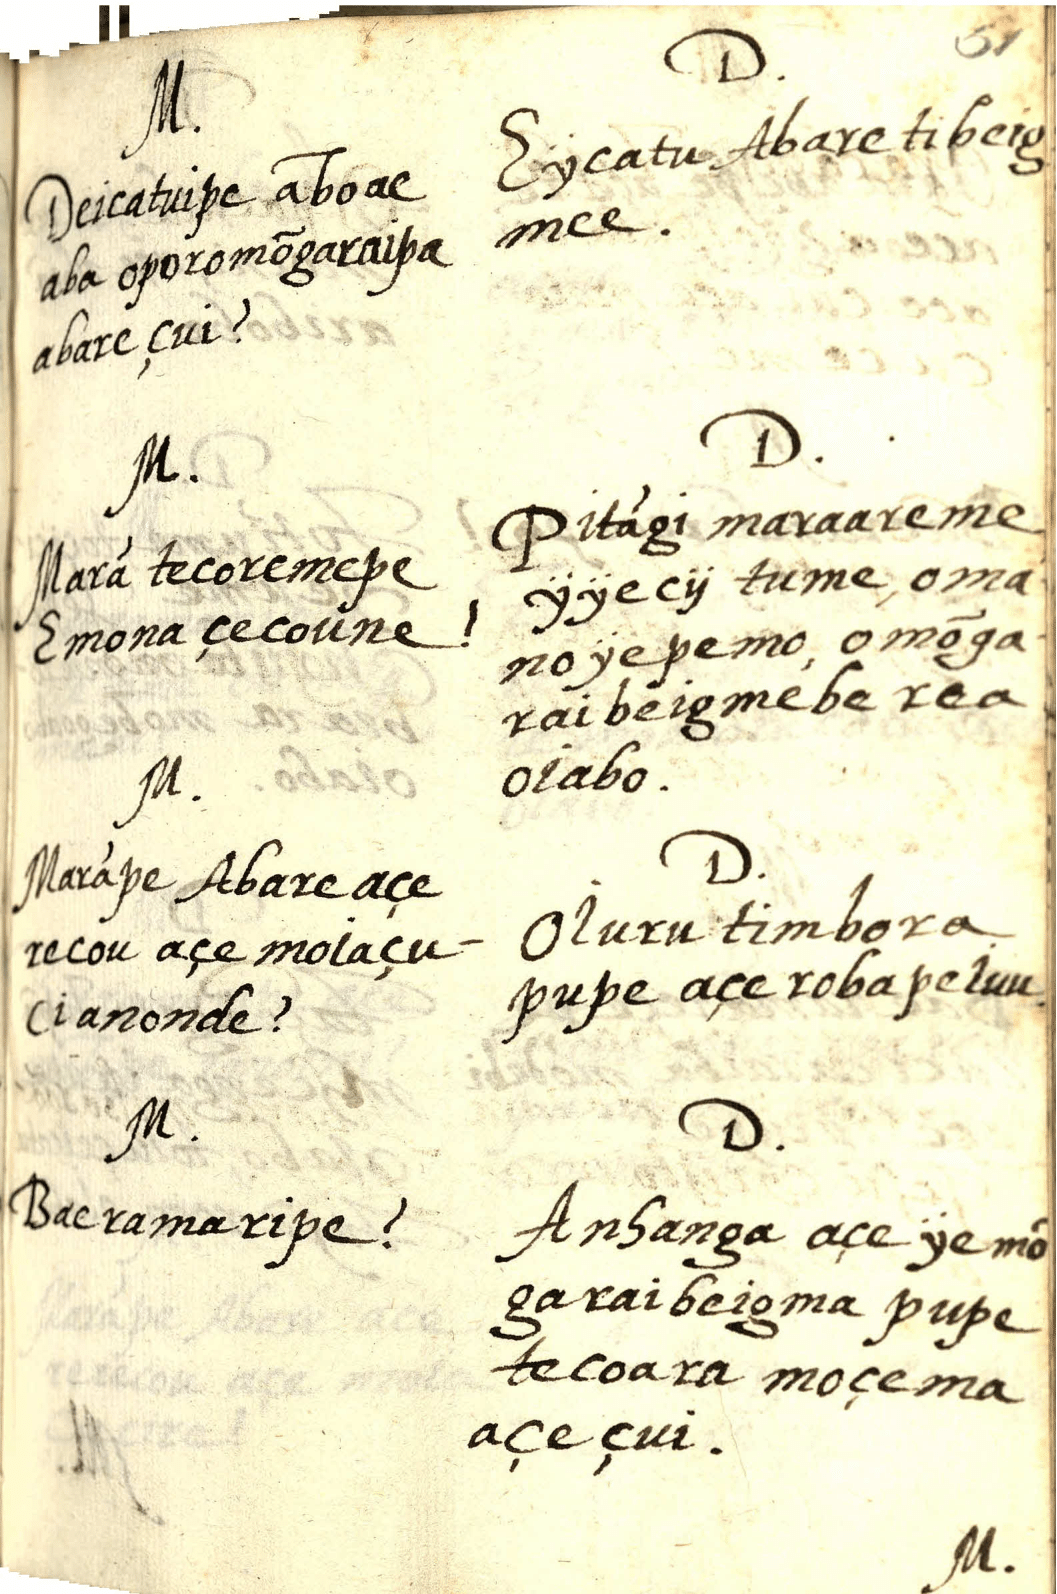 61
M.
Deicatuipe aboae
aba oporomõgaraipa
abare çui?
D.
Eiycatu Abare tibeig
mee.
M.
Mará tecoremepe
Emona çecoüne?
D.
Pitági maraareme
ÿÿecij tume, oma
noÿepemo, omõga
raibeigmébe rea
oiabo.
M.
Marápe Abare açe
recou açe moiaçu-
ci anonde?
D.
Oiuru timbora
pupe açe robapeiuu.
M.
Bae ramaripe?
D.
Anhanga açe ÿemõ
garaibeigma pupe
tecoara moçema
açe çui.
M.